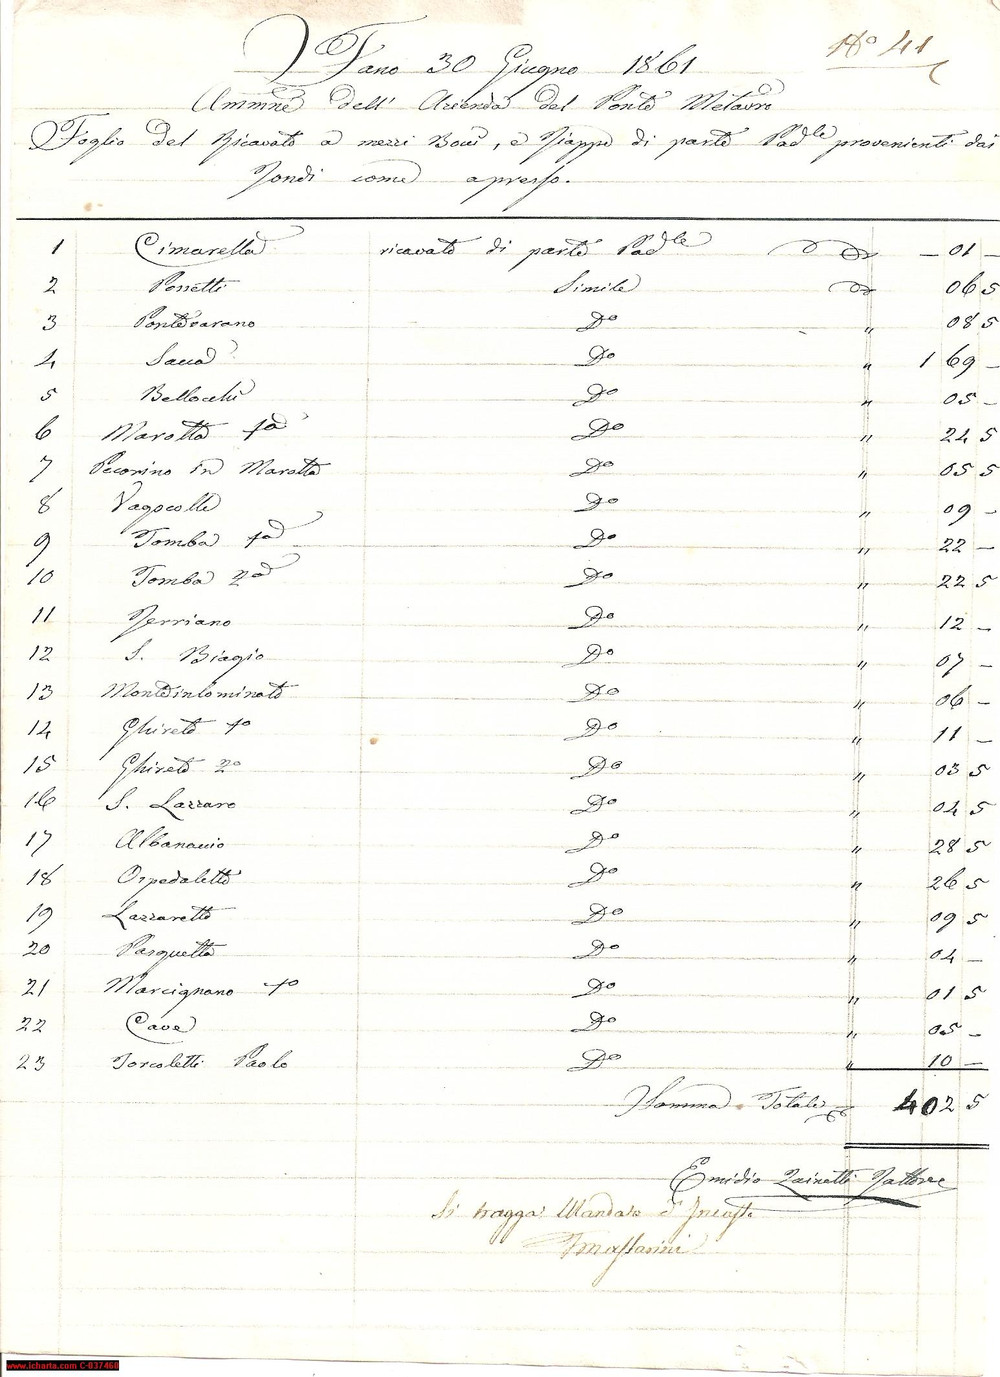 N.o 41
Fano 30 Giugno 1861
Ammne dell' Azienda del Ponte Metauro
Foglio del Ricavato a mezzi Bovi, e di parte Padle provenienti dai
Fondi come appresso.
1 Cimarella ricavato di parte Padle - 01 -
2 Ponsetti Simile 06 5
3 Pontevarano Do " 08 5
4 Sacca Do " 1 69 -
5 Bellocchi Do " 05 -
6 Marotta 1a Do " 24 5
7 Pecorino in Marotta Do " 05 5
8 Vagocolle Do " 09 -
9 Tomba 1a Do " 22 -
10 Tomba 2a Do " 22 5
11 Ferriano Do " 12 -
12 S. Biagio Do " 07 -
13 Do " 06 -
14 Ghireto 1o Do " 11 -
15 Ghireto 2o Do " 03 5
16 S. Lazzaro Do " 04 5
17 Albanaccio Do " 28 5
18 Ospedaletto Do " 26 5
19 Lazzaretto Do " 09 5
20 Pasquetta Do " 04 -
21 Marcignano 1o Do " 01 5
22 Cave Do " 05 -
23 Torcoletti Paolo Do " 10 -
Somma Totale 402 5
Emidio Zainetti Fattore
Si tragga Mandato d' Incasso
www.icharta.com C-037460